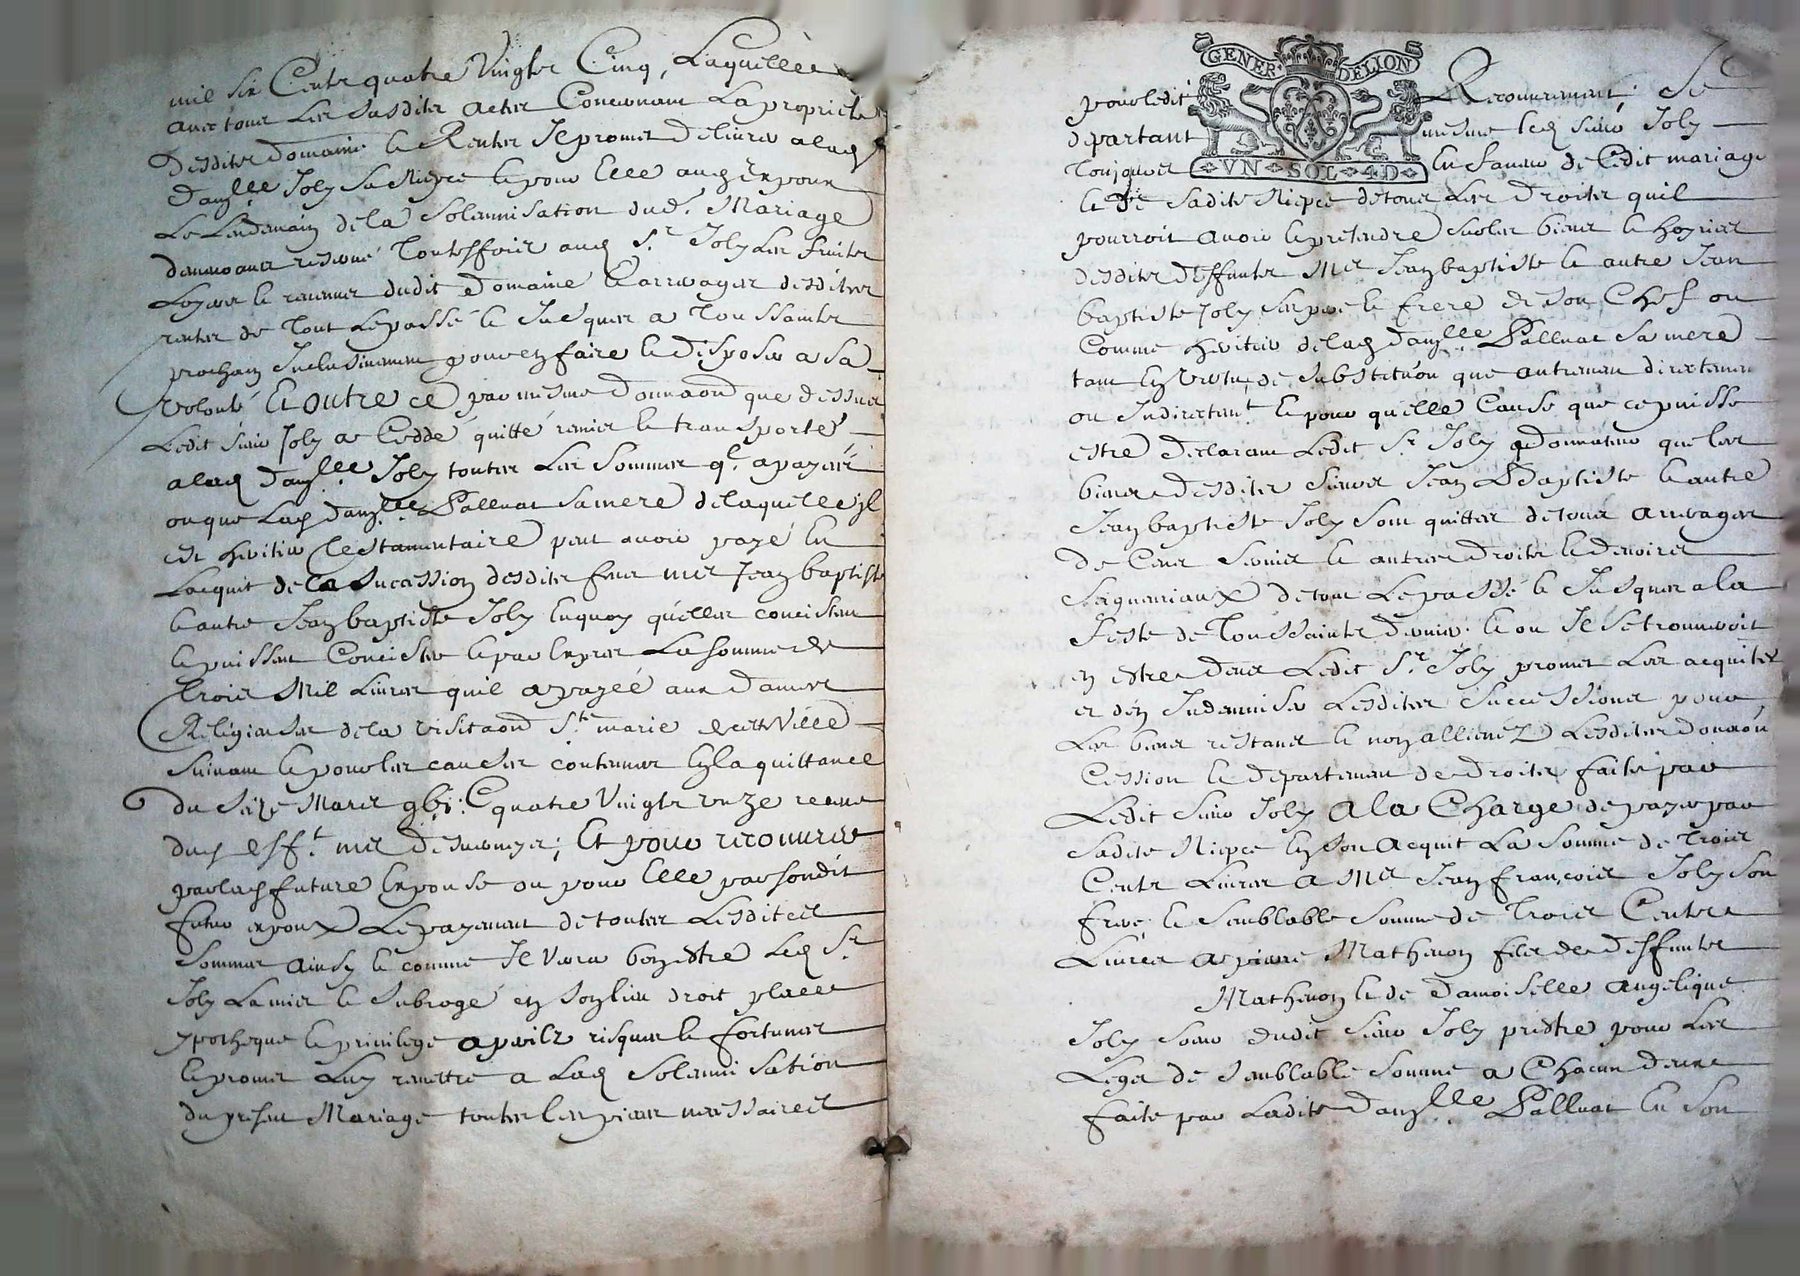 mil six Cents quatre Vingts Cinq, Laquelle
avec tous Les susdits actes Concernant La proprieté
desdits domaine et Rentes Il promet delivrer a lad.
dam.lle Joly sa Niepce et pour Elle aud. Expoux
Le Lendemain de la Solemnisation dud. Mariage
reservé Touttesfois aud. S.r Joly Les fruits
Loyers et revenus dudit Domaine et arrerages desdites
rentes de Tout Lepassé et Jusques a Toussaints
prochain Inclusivement pour en faire et disposer a sa
volonté Et outre ce par mesme donnaõn que dessus
Ledit sieur Joly a Ceddé quitté remis et transporté
a lad. dam.lle Joly touttes Les sommes q.l a payées
ou que Lad. dam.lle Palluat sa mere de laquelle jl
est heritier testamentaire peut avoir payé En
Lacquit de la sucession desdits feus mes Jean baptiste
et autre Jean baptiste Joly En quoy qu'elles concistent
et puissent Concister et par Expres La somme de
Trois Mil Livres quil a payée aux dames
Religieuses de la visitaõn S.te marie de cette Ville
suivant et pour les causes contenues En la quittance
du seize Mars gbi.C quatre Vingts unze receue
dud. deff.t me ; Et pour recouvrer
par lad. future Expouse ou pour Elle par sondit
futur expoux Le payement de touttes Lesdites
sommes ainsy et comme Il Verra bon estre Led. S.r
Joly La mis et subrogé en son lieu droit place
ypotheque et privilege a perilz risques et fortunes
et promet Luy remettre a Lad. Solemnisation
du present Mariage touttes les pieces necessaires
GENER. DELION
VN SOL 4D
pour ledit Recouvrement ; Se
departant mesme led. sieur Joly
Tousjours En faveur de Cedit mariage
et de sadite Niepce de tous Les droits quil
pourroit avoir et pretendre sur les biens et hoyries
desdits deffunts Mes Jean baptiste et autre Jean
baptiste Joly ses pere et frere de son Chef ou
Comme heritier de lad. dam.lle Palluat sa mere
tant En Vertu de substitution que autrement directement
ou Indirectem.t et pour quelle Cause que ce puisse
estre declarant Ledit S.r Joly donnateur que les
biens desdits sieurs Jean Baptiste et autre
Jean baptiste Joly sont quittes de tous arrerages
de Cens servis et autres droits et devoirs
seigneuriaux de tout Lepassé et Jusques a la
feste de Toussaints dernier et ou Il se trouveroit
en estre deus Ledit S.r Joly promet Les acquitter
et d'en Indemniser Lesdites successions pour
Les biens restants et non allienez Lesdites donaõn
Cession et departement de droits faite par
Ledit sieur Joly a la Charge de payer par
sadite Niepce En son acquit La somme de Trois
Cents Livres a Me Jean françois Joly son
frere et semblable somme de Trois Centz
Livres a pierre Mathenon fils de deffunts
Mathenon et de damoiselle angelique
Joly soeur dudit sieur Joly prestre pour Les
Legs de semblable somme a Chacun deux
faits par Ladite dam.lle Palluat En son